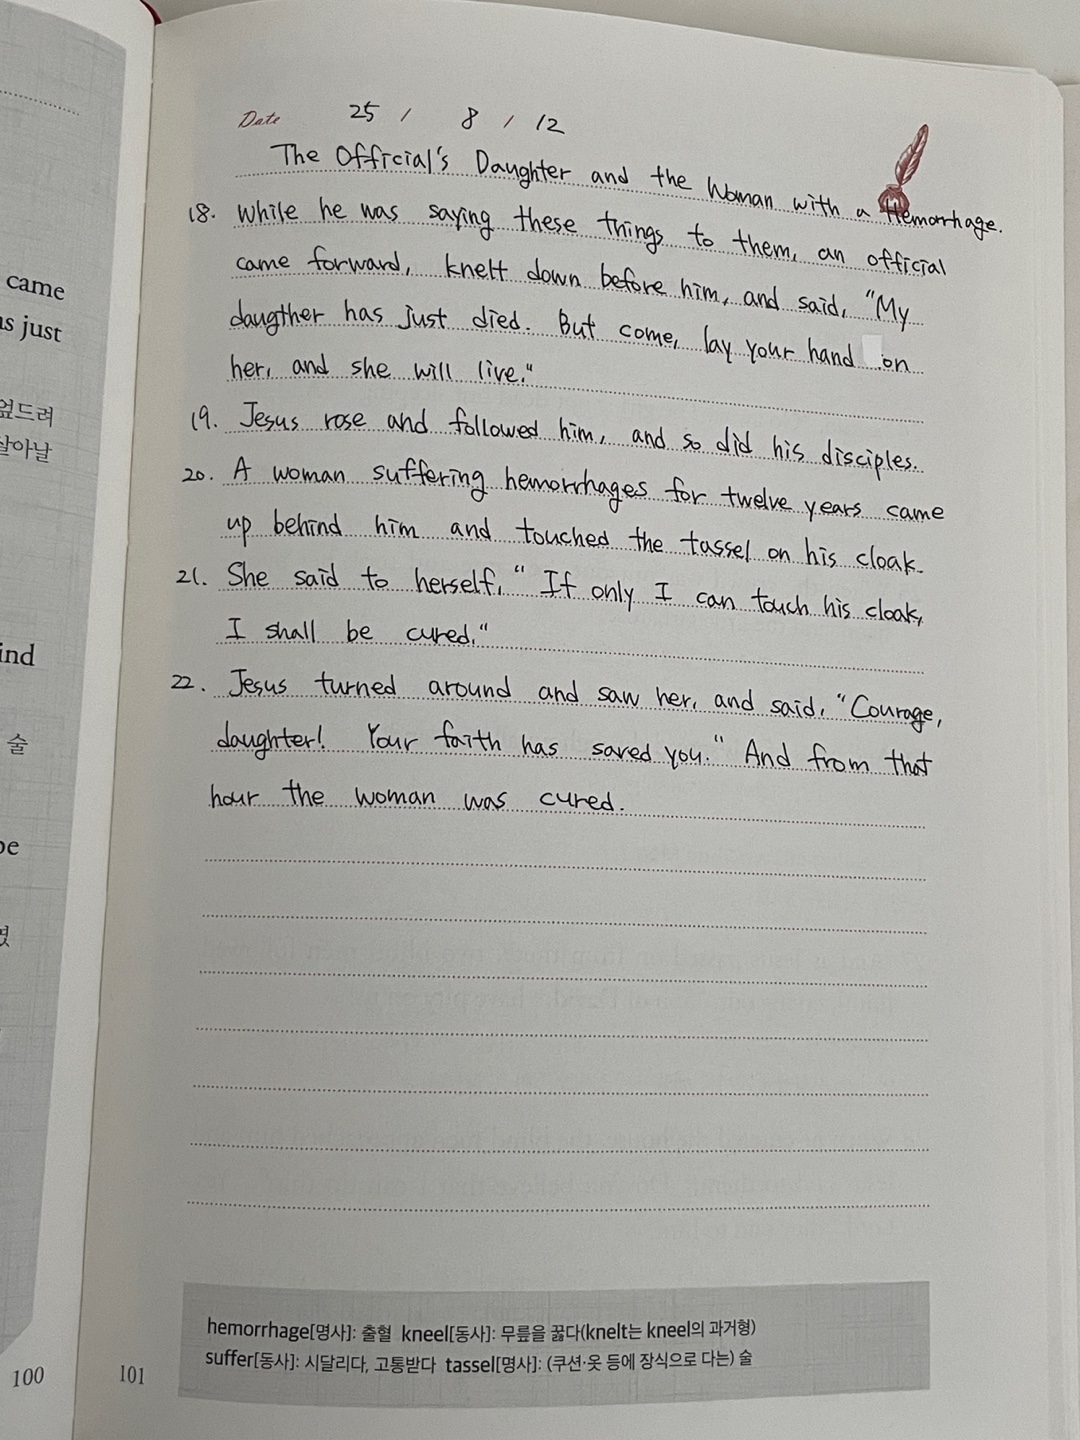 came
s just
엎드려
살아날
ind
술
be
Date 25 / 8 / 12
The Official's Daughter and the Woman with a Hemorrhage.
18. While he was saying these things to them, an official
came forward, knelt down before him, and said, "My
daugther has just died. But come, lay your hand on
her, and she will live."
19. Jesus rose and followed him, and so did his disciples.
20. A woman suffering hemorrhages for twelve years came
up behind him and touched the tassel on his cloak.
21. She said to herself, "If only I can touch his cloak,
I shall be cured."
22. Jesus turned around and saw her, and said, "Courage,
daughter! Your faith has saved you." And from that
hour the woman was cured.
hemorrhage[명사]: 출혈 kneel[동사]: 무릎을 꿇다(knelt는 kneel의 과거형)
suffer[동사]: 시달리다, 고통받다 tassel[명사]: (쿠션·옷 등에 장식으로 다는) 술
100
101